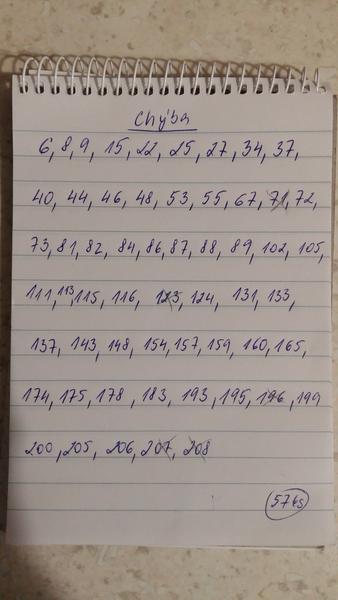 Chýba
6, 8, 9, 15, 22, 25, 27, 34, 37,
40, 44, 46, 48, 53, 55, 67, 71, 72,
73, 81, 82, 84, 86, 87, 88, 89, 102, 105,
111, 113, 115, 116, 123, 124, 131, 133,
137, 143, 148, 154, 157, 159, 160, 165,
174, 175, 178, 183, 193, 195, 196, 199
200, 205, 206, 207, 208
57ks